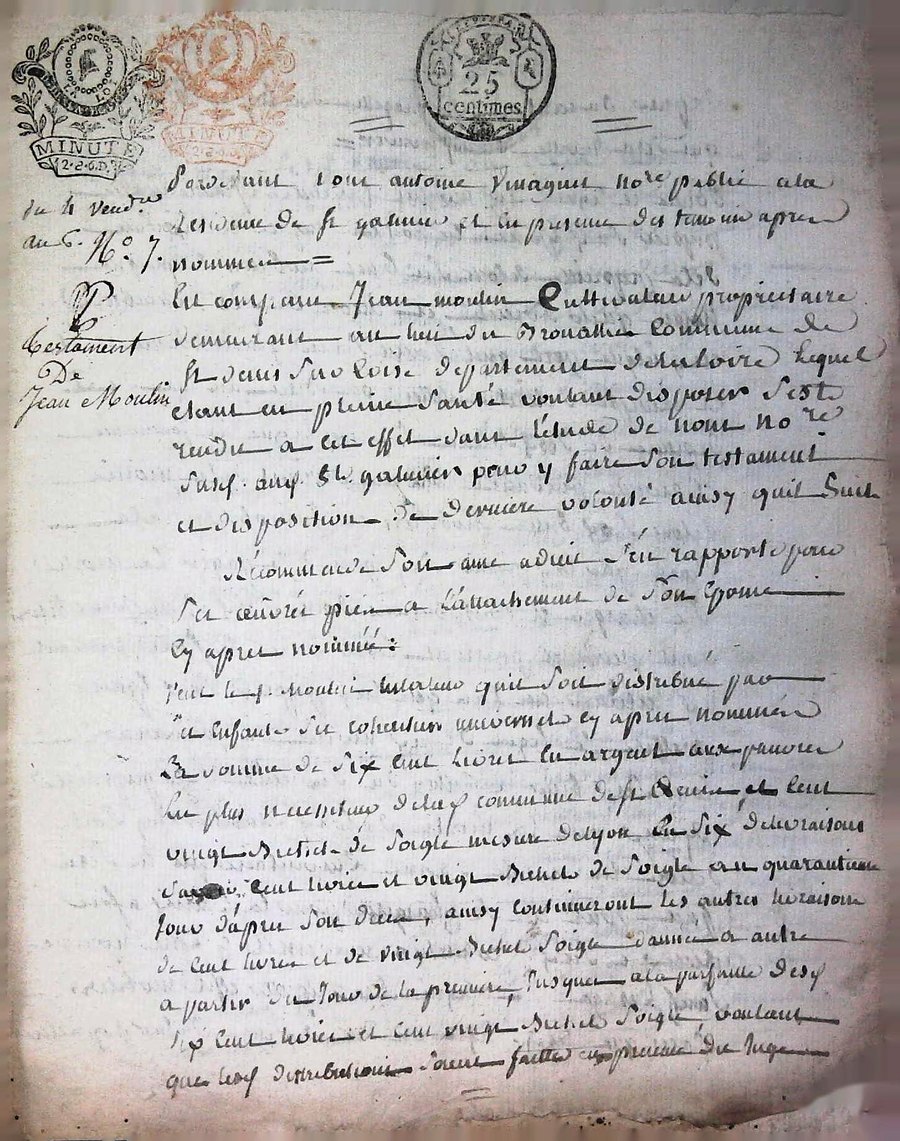 LA LOI
MINUTE
2.S.6.D.
MINUTE
2.S.6.D.
25
centimes
du 4 vendre
an 6. No. 7.
Testament
De
Jean Moulin
Pardevant nous antoine nore public ala
Residence de st galmier et en presence des temoins apres
nommes
Est comparu Jean moulin Cultivateur proprietaire
demeurant au lieu du Commune de
st denis sur Loise departement delaloire Lequel
etant en pleine santé voulant disposer s'est
rendu a cet effet dans l'étude de nous nore
susd. aud. St galmier pour y faire son testament
et disposition De derniere volonté ainsy quil suit
Récommende son ame adieu s'en rapporte pour
ses œuvres pies a l'attachement de son Epouse
cy apres nommée:
veut led moulin testateur quil soit distribué par
ses Enfants ses heritiers universels cy apres nommés
La somme de six cent livres en argent aux pauvres
les plus necessiteux delad commune de st Denis et cent
vingt Bichets de soigle mesure delyon en six delivraisons
savoir, cent livres et vingt Bichets de soigle au quarantieme
jour d'apres son deces, ainsy continueront les autres livraisons
de cent livres et de vingt Bichet soigle d'année a autre
a partir du Jour de la premiere, Jusques ala parfaitte desd
six cent livres et cent vingt Bichet soigle voulant
que lesd distributions soient faittes en presence du Juge